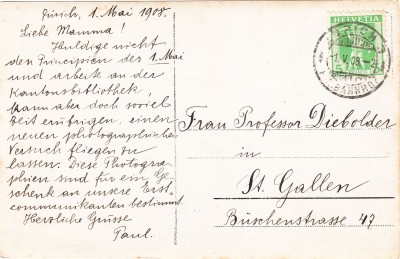 Zürich, 1. Mai 1908.
Liebe Mamma!
Huldige nicht
den Principien des 1. Mai
und arbeite an der
Kantonsbibliothek,
kann aber doch soviel
Zeit erübrigen, einen
neuen photographischen
Versuch fliegen zu
lassen. Diese Photogra-
phien sind für ein Ge-
schenk an unsere Erst-
communikanten bestimmt.
Herzliche Grüsse
Paul.
HELVETIA
1. V. 08
BAHNHOF
Frau Professor Diebolder
in
St. Gallen
Büschenstrasse 47